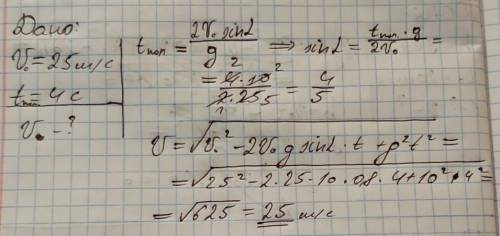 Дано:
V₀ = 25 м/с
t пол = 4 с
V₀ - ?
t пол. = 2V₀ sin L / g ⟹ sin L = t пол. · g / 2V₀ =
= 4 · 10 2 / 2 · 25 5 = 4/5
V = √V₀² - 2V₀ g sin L · t + g² t² =
= √25² - 2 · 25 · 10 · 0.8 · 4 + 10² · 4² =
= √625 = 25 м/с